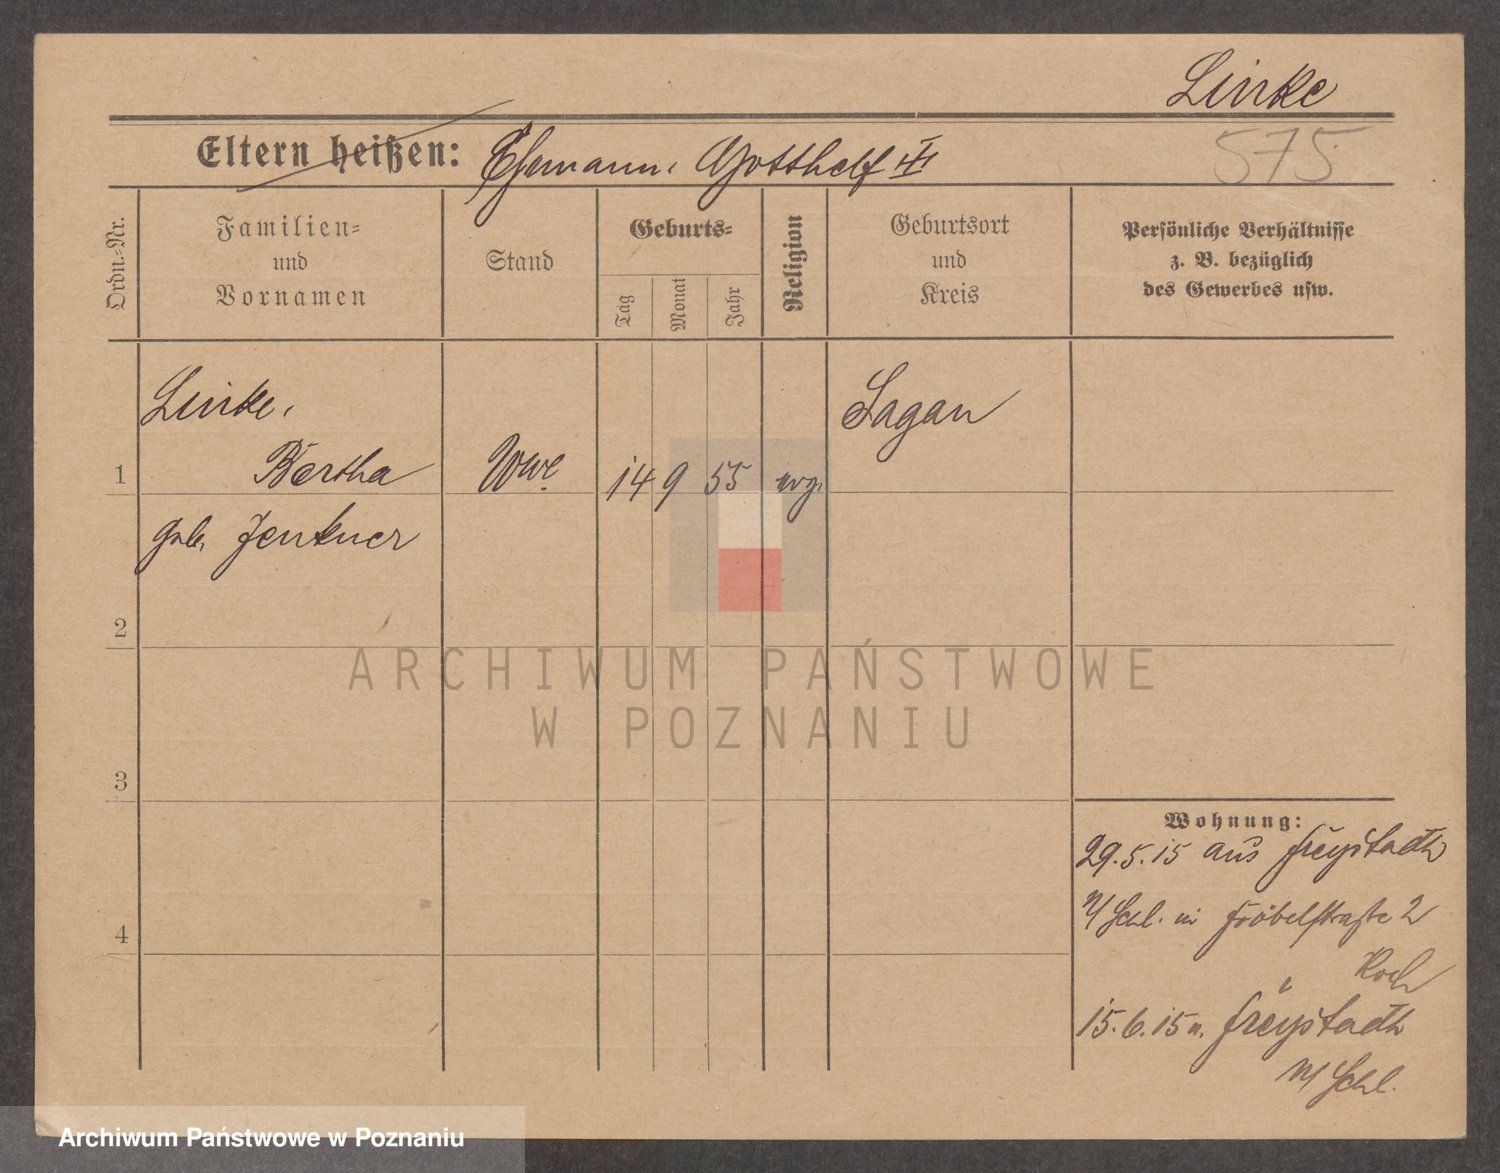 Linke
Eltern heißen: Ehemann: Gotthelf ♱
575
Ordn.-Nr.
Familien-
und
Vornamen
Stand
Geburts-
Tag
Monat
Jahr
Religion
Geburtsort
und
Kreis
Persönliche Verhältnisse
z. B. bezüglich
des Gewerbes usw.
Linke,
1 Bertha Wwe. 14 9 55 evg. Sagan
geb. Jentner
2
3
4
Wohnung:
29.5.15 aus Freystadt
N/Schl. in Fröbelstraße 2
Koch
15.6.15 n. Freystadt
N/Schl.
ARCHIWUM PAŃSTWOWE
W POZNANIU
Archiwum Państwowe w Poznaniu